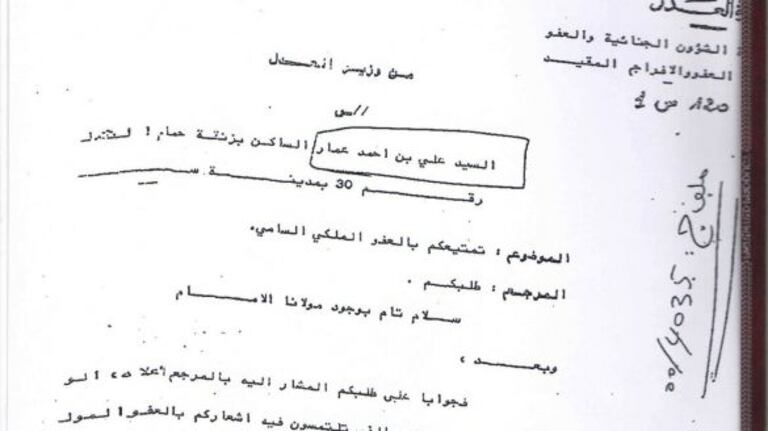 العدل
الشؤون الجنائية والعفو
العفو والافراج المقيد
من وزير العدل
//س
السيد علي بن احمد عمار الساكن بزنقة حمام
رقم 30 بمدينة
الموضوع : تمتيعكم بالعفو الملكي السامي.
المرجع : طلبكم .
سلام تام بوجود مولانا الامام
وبعد ،
فجوابا على طلبكم المشار اليه بالمرجع أعلاه ،
تلتمسون فيه اشعاركم بالعفو
ملف ج : 00/4035